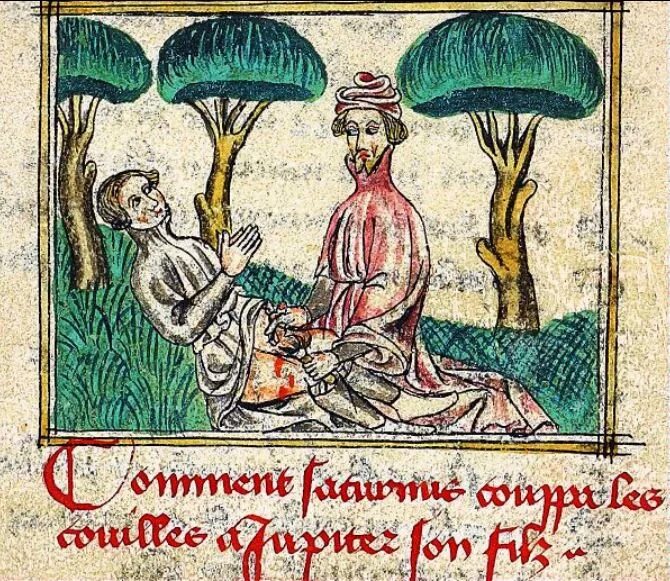 Comment saturnus couppa les
couilles a Jupiter son filz